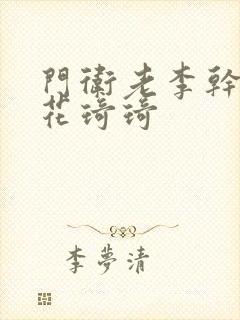 門衛老李幹
花琦琦
李夢清